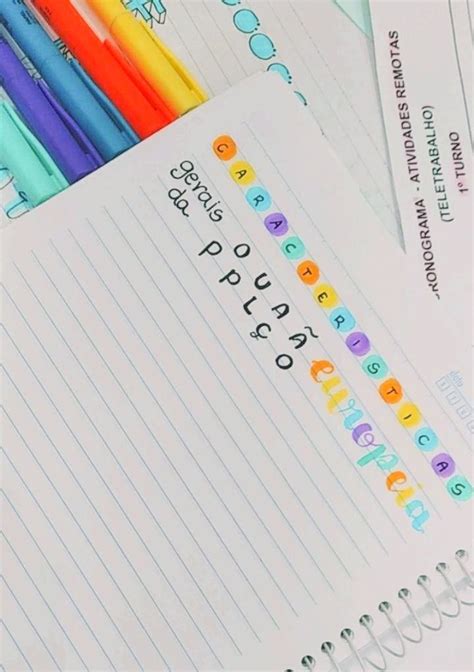 CARACTERISTICAS
gerais
da
POPULAÇÃO
europeia
RONOGRAMA - ATIVIDADES REMOTAS
(TELETRABALHO)
1º TURNO